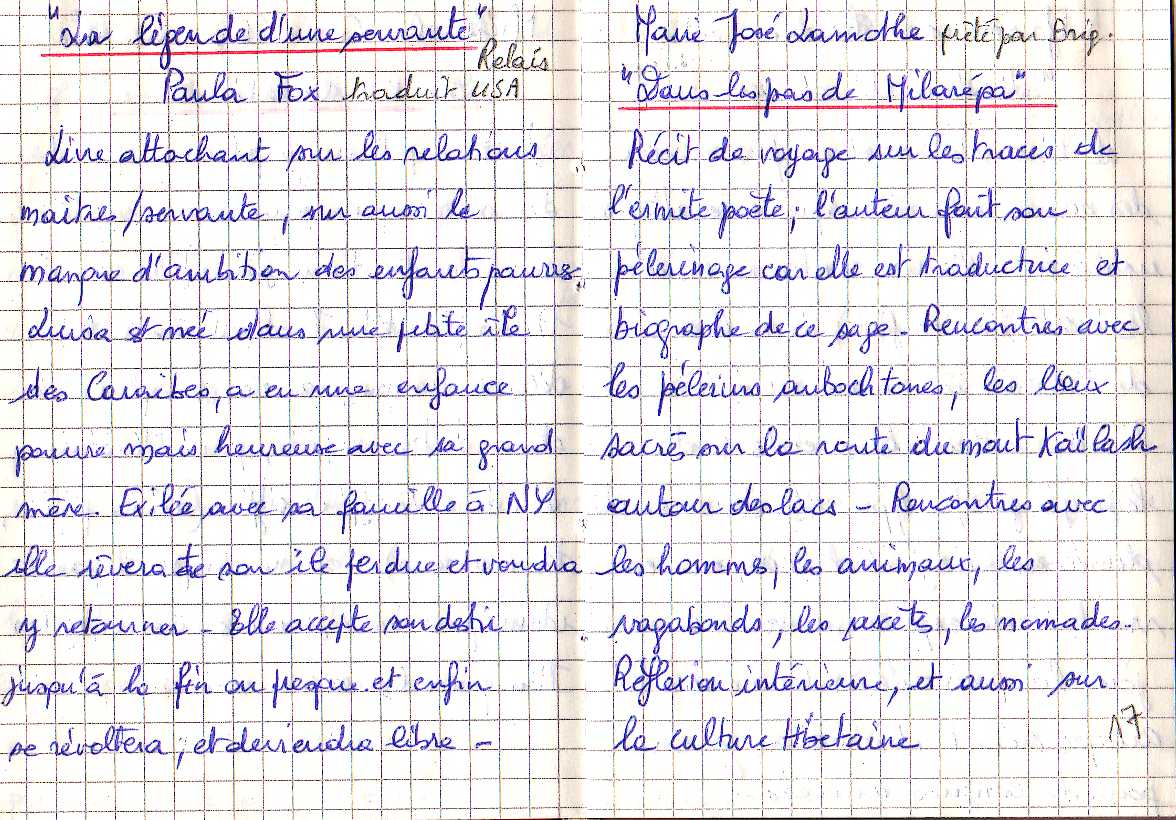 "La légende d'une servante"
Relais
Paula Fox traduit USA
Livre attachant sur les relations
maitres/servante, sur aussi le
manque d'ambition des enfants pauvres
Luisa est née dans une petite île
des Caraïbes, a eu une enfance
pauvre mais heureuse avec sa grand
mère. Exilée avec sa famille à NY
elle rêvera de son île perdue et voudra
y retourner - Elle accepte son desti
jusqu'à la fin ou presque et enfin
se révoltera, et deviendra libre -
Marie José Lamothe prêté par Brig.
"Dans les pas de Milarépa"
Récit de voyage sur les traces de
l'ermite poète; l'auteur fait son
pélerinage car elle est traductrice et
biographe de ce sage - Rencontres avec
les pélerins autochtones, les lieux
sacrés sur la route du mont Kaïlash
autour des lacs - Rencontres avec
les hommes, les animaux, les
vagabonds, les ascètes, les nomades.
Réflexion intérieure, et aussi sur
la culture tibétaine
17